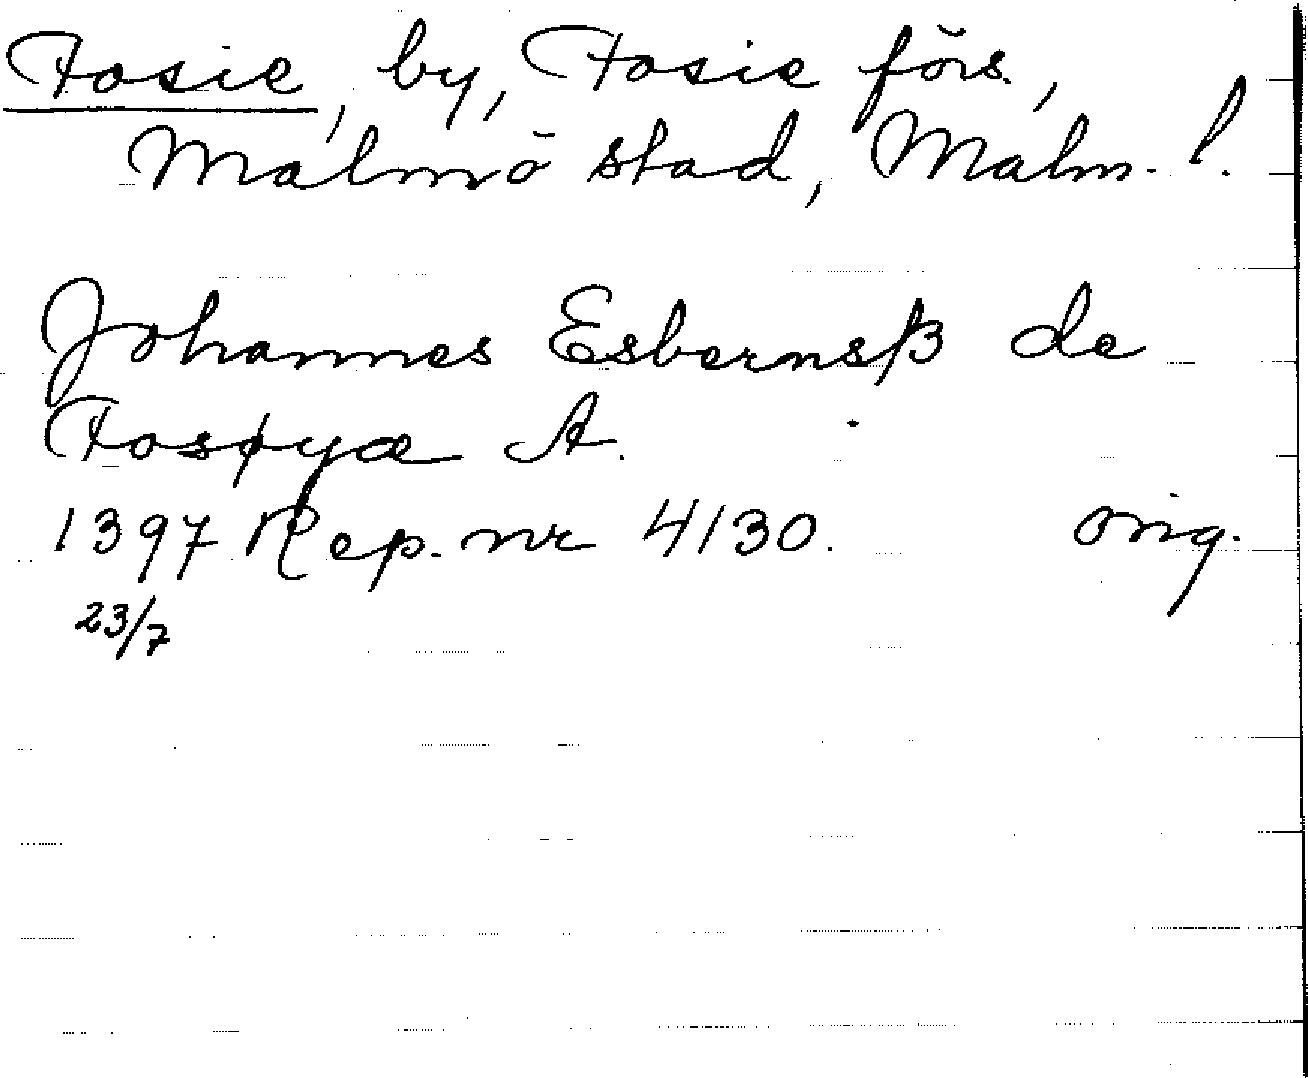 Fosie, by, Fosie förs.,
Malmö stad, Malm. l.
Johannes Esbernsß de
Fosøyæ A.
1397 Rep. nr 4130. orig.
23/7